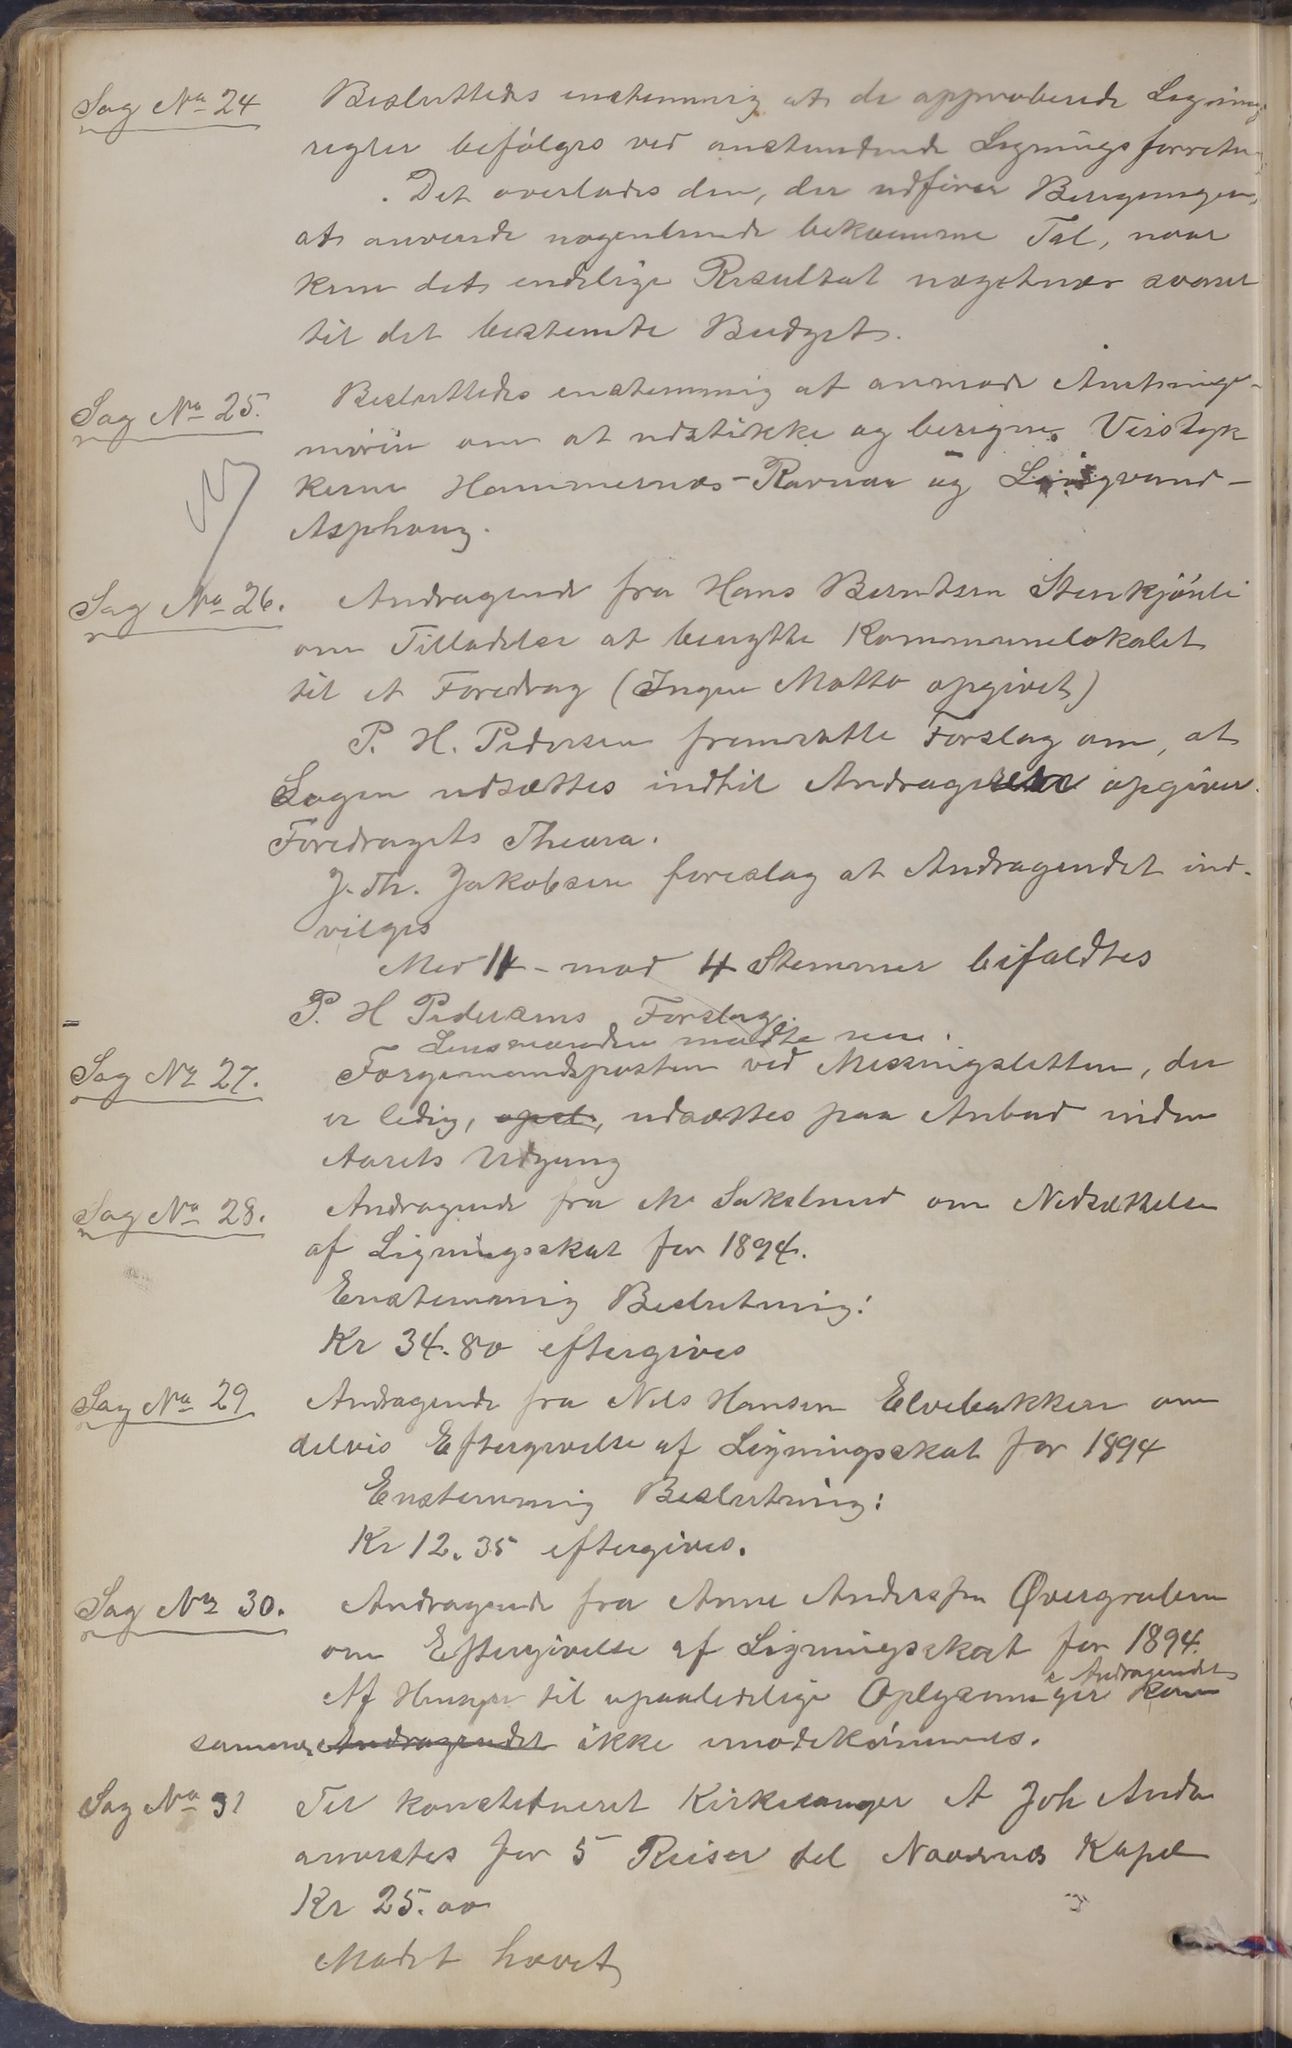 Sag No 24 Besluttedes enstemmig at de approberede Lignings
regler befölges ved anstundende Lignings forretn
. Det overlades den, der udfører Beregningen,
at anvende nogenlunde bekvemme Tal, naar
kun det endelige Resultat nogetnær svarer
til det bestemte Budget.
Sag No 25. Besluttedes enstemmig at anmode Amtsinge-
niøren om at udstikke og beregne Veistyk
kerne Hammernes-Ravnaa og Langvand-
Asphaug.
Sag No 26. Andragende fra Hans Berntsen Stenkjönli
om Tilladelse at benytte Kommunelokalet
til et Foredrag (Ingen Motto opgivet)
P. H. Pedersen fremsatte Forslag om, at
Sagen udsættes indtil Andrageren opgiver
Foredragets Thema.
J. Th. Jakobsen foreslog at Andragendet ind-
vilges
Med 11 - mod 4 Stemmer bifaldtes
P. H Pedersens Forslag.
Lensmanden mødte nu.
Sag No 27. Færgemandsposten ved Messingsletten, der
er ledig, opsl, udsættes paa Anbud inden
Aarets Udgang
Sag No 28. Andragende fra M. Sakslund om Nedsættelse
af Ligningsskat for 1894.
Enstemmig Beslutning:
Kr 34.80 eftergives
Sag No 29 Andragende fra Nels Hansen Elvebakken om
delvis Eftergivelse af Ligningsskat for 1894
Enstemmig Beslutning:
Kr 12.35 eftergives.
Sag No 30. Andragende fra Anne Andersen Øvergraben
om Eftergivelse af Ligningsskat for 1894.
Af Hensyn til upaalidelige Oplysninger Andragendet kan
Andragendet ikke imødekommes.
Sag No 31 Til konstitueret Kirkesanger A Joh Anda
anvistes for 5 Reiser til Naevernes Kapel
Kr 25.00
Mødet hævet